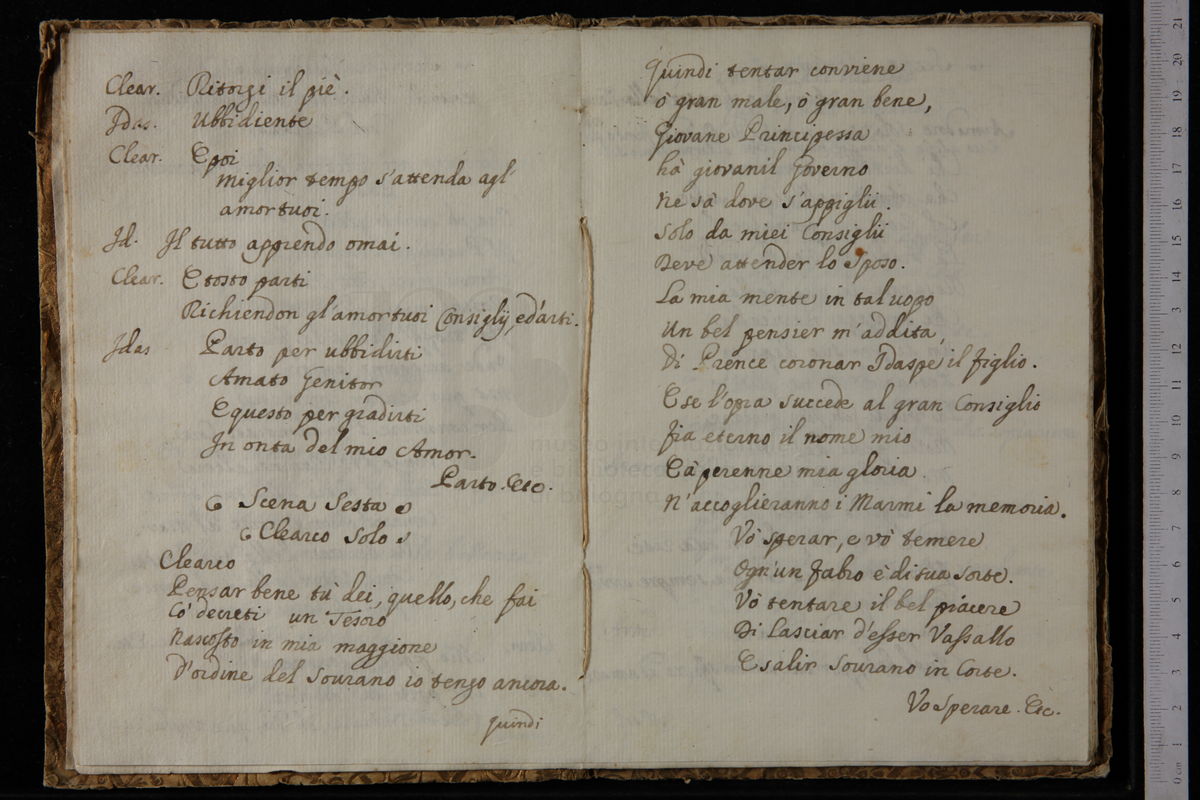 Clear. Ritorgi il piè.
Idas. Ubbidiente
Clear. E poi
miglior tempo s'attenda agl'
amor tuoi.
Id. Il tutto apprendo omai.
Clear. E tosto parti
Richiendon gl'amor tuoi Consiglij, ed'arti.
Idas Parto per ubbidirti
Amato Genitor
E questo per gradirti
In onta del mio Amor.
Parto. Etc.
Scena Sesta
Clearco Solo
Clearco
Pensar bene tù dei, quello, che fai
Co' decreti un Tesoro
Nascosto in mia maggione
D'ordine del Sourano io tengo ancora.
Quindi
Quindi tentar conviene
ò gran male, ò gran bene,
Giovane Principessa
hà giovanil Governo
Ne sà dove s'appiglii.
Solo da miei Consiglii
Deve attender lo Sposo.
La mia mente in tal uopo
Un bel pensier m'addita,
Di Prence coronar Idaspe il figlio.
E se l'opra succede al gran Consiglio
fia eterno il nome mio
E à perenne mia gloria
N'accoglieranno i Marmi la memoria.
Vò sperar, e vò temere
Ogn'un fabro è di sua sorte.
Vò tentare il bel piacere
Di lasciar d'esser Vassallo
E salir Sourano in Corte.
Vo sperare. Etc.